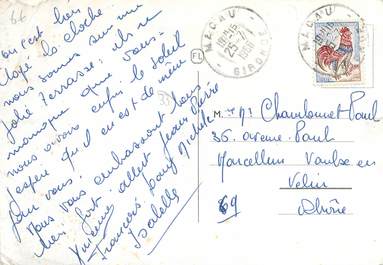 67
on est bien
Café la cloche
nous sommes sur une
jolie terrasse: il ne
manque que vous-
nous avons enfin le soleil
j'espère qu'il en est de même
pour vous.
Nous vous embrassons tous
bien fort. Albert Jean Pierre
Vincenne
Françoise Michèle
Isabelle
MACAU
18H45
25-7
1966
GIRONDE
FL
MACAU
M. Chambonnet Paul
36. avenue Paul
Marcellin Vaulx en
Velin
69 Rhône